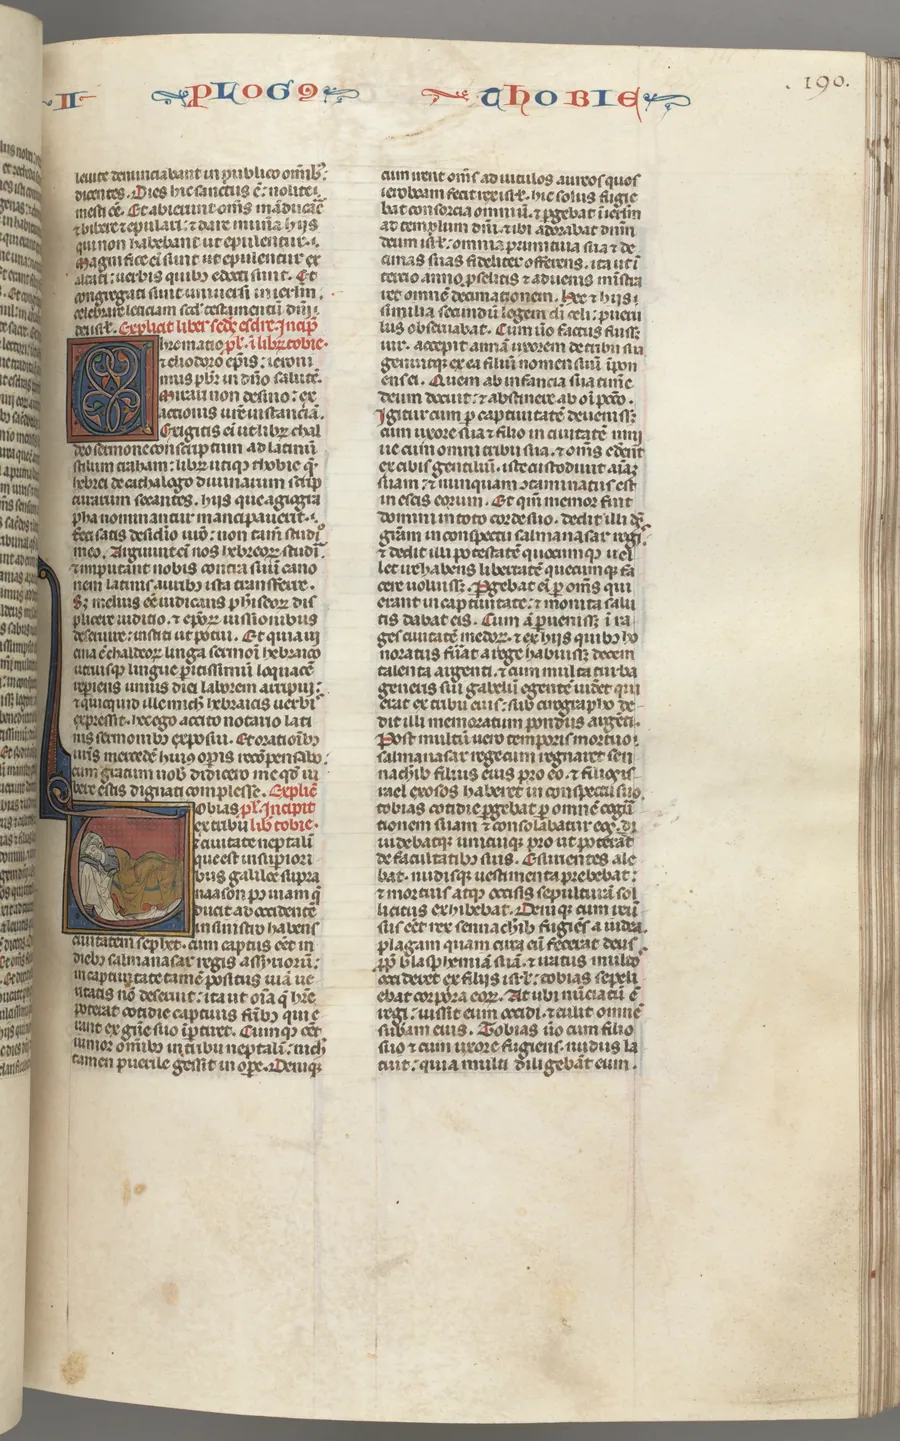 II PLOG9 THOBIE
190.
leuite denunciabant in publico omib;
dicentes. Dies hic sanctus ē: nolite
mesti eē. Et abierunt om̄s māducare
⁊ bibere ⁊ epulari: ⁊ dare munera hijs
qui non habebant ut epulentur.
Magnifice ei sunt ut epulentur ex
altati: uerbis quibꝫ edocti sunt. Et
congregati sunt uniuersi in ierlm̄.
celebrare leticiam scdꝫ testamentū dn̄i
dei isrl̄. Explicit liber scds esdre. Incip̄
hromatio pl̄. i libꝝ tobie.
⁊ eliodoro ep̄is: ieroni
mus pbr̄ in dn̄o salutē.
Mirari non desino: ex
actionis ur̄e instanciā.
Exigitis ei ut libꝝ chal
deo sermone conscriptum ad latinū
stilum traham: libꝝ utiqꝫ thobie q̄
hebrei de cathalogo diuinarum scrip
turarum secantes. hijs que agiogra
pha nominantur manciparunt.
feci satis desidio ur̄o: non tam̄ studio
meo. Arguunt ei nos hebreoꝝ studia
⁊ imputant nobis contra suū cano
nem latinis auribꝫ ista transferre.
Sꝫ melius eē iudicans phiseoꝝ dis
plicere iudicio. ⁊ ep̄oꝝ iussionibus
deseruire: institi ut potui. Et quia ui
cina ē chaldeoꝝ lingua sermoni hebraico
utriusqꝫ lingue ꝑitissimū loquacē
reꝑiens unius diei laborem arripui:
⁊ quicquid ille mich̄ hebraicis uerbis
expressit. hec ego accito notario lati
nis sermonibꝫ exposui. Et orationibꝫ
ur̄is mercedē huiꝰ oꝑis recōpensabo:
cum gratum nob̄ didicero me qd̄ iu
bere estis dignati complesse. Explic̄
obias pl̄. Incipit
ex tribu lib̄ tobie.
⁊ ciuitate neptali
que est in suꝑiori
bus galilee supra
naason pꝰ uiam q̄
ducit ad occidentē
in sinistro habens
ciuitatem sephet. cum captus eēt in
diebꝫ salmanasar regis assirioꝝ:
in captiuitate tamē positus uiā ue
ritatis nō deseruit: ita ut oīa q̄ hr̄e
poterat cotidie captiuis fr̄ibꝫ qui e
rant ex gn̄e suo īꝑtiret. Cumqꝫ eēt
iunior omibꝫ in tribu neptalī: nich̄
tamen puerile gessit in oꝑe. Deniqꝫ
cum irent om̄s ad uitulos aureos quos
ieroboam fecit rex isrl̄. hic solus fugie
bat consorcia omniū. ⁊ ꝑgebat ī ierlm̄
ad templum dn̄i. ⁊ ibi adorabat dn̄m
deum isrl̄: omnia primitiua sua ⁊ de
cimas suas fideliter offerens. ita ut ī
tercio anno ꝓselitis ⁊ aduenis ministra
ret omnē decimationem. Hec ⁊ hijs
similia secundū legem di celi: pueru
lus obseruabat. Cum ūo factus fuissꝫ
uir. accepit annā uxorem de tribu sua
genuitqꝫ ex ea filiū nomen suū īpon
ens ei. Quem ab infancia sua timē
deum docuit: ⁊ abstinere ab oī pccō.
Igitur cum ꝑ captiuitatē deuenissꝫ
cum uxore sua ⁊ filio in ciuitatē nini
ue cum omni tribu sua. ⁊ om̄s ederēt
ex cibis gentiliū. iste custodiuit aīaꝫ
suam: ⁊ nunquam ꝯtaminatus est
in escis eorum. Et qm̄ memor fuit
domini in toto corde suo. dedit illi dꝰ
grām in conspectu salmanasar regꝭ
⁊ dedit illi potestatē quocumqꝫ uel
let ire habens libertatē quecumqꝫ fa
cere uoluissꝫ. Pgebat ei ꝑ om̄s qui
erant in captiuitate: ⁊ monita salu
tis dabat eis. Cum ā ꝑuenissꝫ ī ra
ges ciuitatē medoꝝ. ⁊ ex hijs quibꝫ ho
noratus fūat a rege habuissꝫ decem
talenta argenti. ⁊ cum multa turba
generis sui gabelū egentē uidēt qui
erat ex tribu eius: sub cirographo de
dit illi memoratum pondus argēti.
Post multū uero temporis mortuo
salmanasar rege cum regnaret sen
nachib filius eius pro eo. ⁊ filios is
rael exosos haberet in conspectu suo
tobias cotidie ꝑgebat ꝑ omnē cogna
tionem suam ⁊ consolabatur eos. di
uidebatqꝫ unicuiqꝫ pro ut poterat
de facultatibꝫ suis. Esurientes ale
bat. nudisqꝫ uestimenta prebebat:
⁊ mortuis atqꝫ occisis sepulturā sol
licitus exhibebat. Deniqꝫ cum reuer
sus eēt rex sennachib fugiēs a iudea
plagam quam circa eū fecerat deus
ꝓp̄ blasphemiā suā. ⁊ iratus multos
occideret ex filiis isrl̄: tobias sepeli
ebat corpora eoꝝ. At ubi nūciatū ē
regi: iussit eum occidi. ⁊ tulit omnē
subam eius. Tobias ūo cum filio
suo ⁊ cum uxore fugiens. nudus la
tuit: quia multi diligebāt eum.